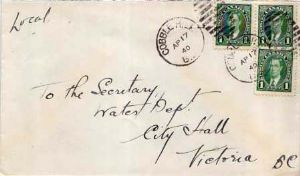 Local
COBBLE HILL
AP 17
40
B.C.
AP 17
40
1 1
1 1
1 1
To the Secretary,
Water Dept.
City Hall
Victoria BC